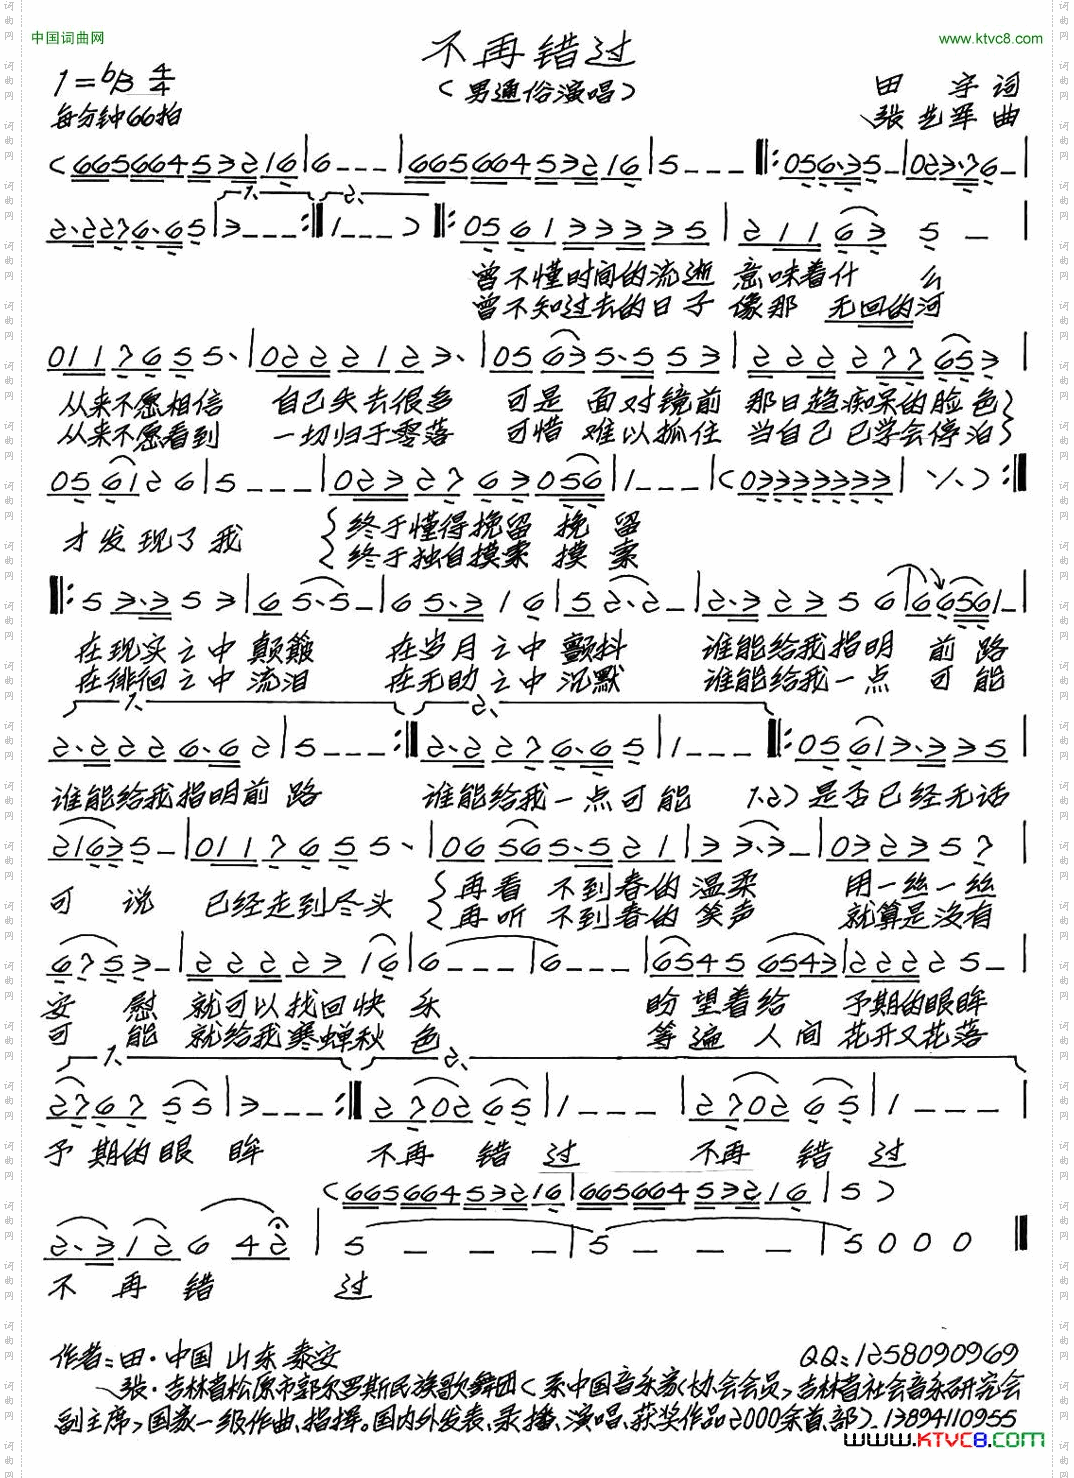 中国词曲网
www.ktvc8.com
不再错过
(男通俗演唱)
1=bB 4/4
田 宇 词
每分钟66拍
张艺军 曲
(66566453216|6---|66566453216|5---‖:056·35-|023·76-|
2·2276·65|3---:‖1---)‖:056133335|21163 5 -|
1、 2、
曾不懂时间的流逝 意味着什 么
曾不知过去的日子 像那 无回的河
0117655·|0222123·|05635·553|222277653|
从来不愿相信 自己失去很多 可是 面对镜前 那日趋痴呆的脸色
从来不愿看到 一切归于零落 可惜 难以抓住 当自己 已学会停泊
056126|5---|0232763056|1---|(03333333|·/·):‖
才发现了我 终于懂得挽留 挽 留
终于独自摸索 摸 索
‖:53·353|65·5-|65·316|52·2-|2·323566|66561-|
在现实之中 颠簸 在岁月之中 颤抖 谁能给我指明 前路
在徘徊之中 流泪 在无助之中 沉默 谁能给我一点 可能
1、 2、
2·2226·62|5---:‖2·2276·65|1---‖:05613·335|
谁能给我指明前 路 谁能给我一点可能 1.2)是否已经无话
21635-|0117655·|066565·521|33·3-|032357|
可 说 已经走到尽头 再看 不到春的温柔 用一丝一丝
再听 不到春的笑声 就算是没有
6753-|2222316|6---|6---|65456543|22225-|
安 慰 就可以找回快 乐 盼望着给 予期的眼眸
可 能 就给我寒蝉秋 色 等遍 人间 花开又花落
1、 2、
276755|3---:‖270265|1---|270265|1---|
予期的眼 眸 不再 错 过 不再 错 过
(66566453216|66566453216|5)
2·312642|5---|5---|5000‖
不 再 错 过
作者:田·中国 山东 泰安
QQ:1258090969
张·吉林省松原市郭尔罗斯民族歌舞团(系中国音乐家协会会员,吉林省社会音乐研究会
副主席)国家一级作曲、指挥。国内外发表、录播、演唱、获奖作品2000余首、部).13894110955
www.KTVC8.com